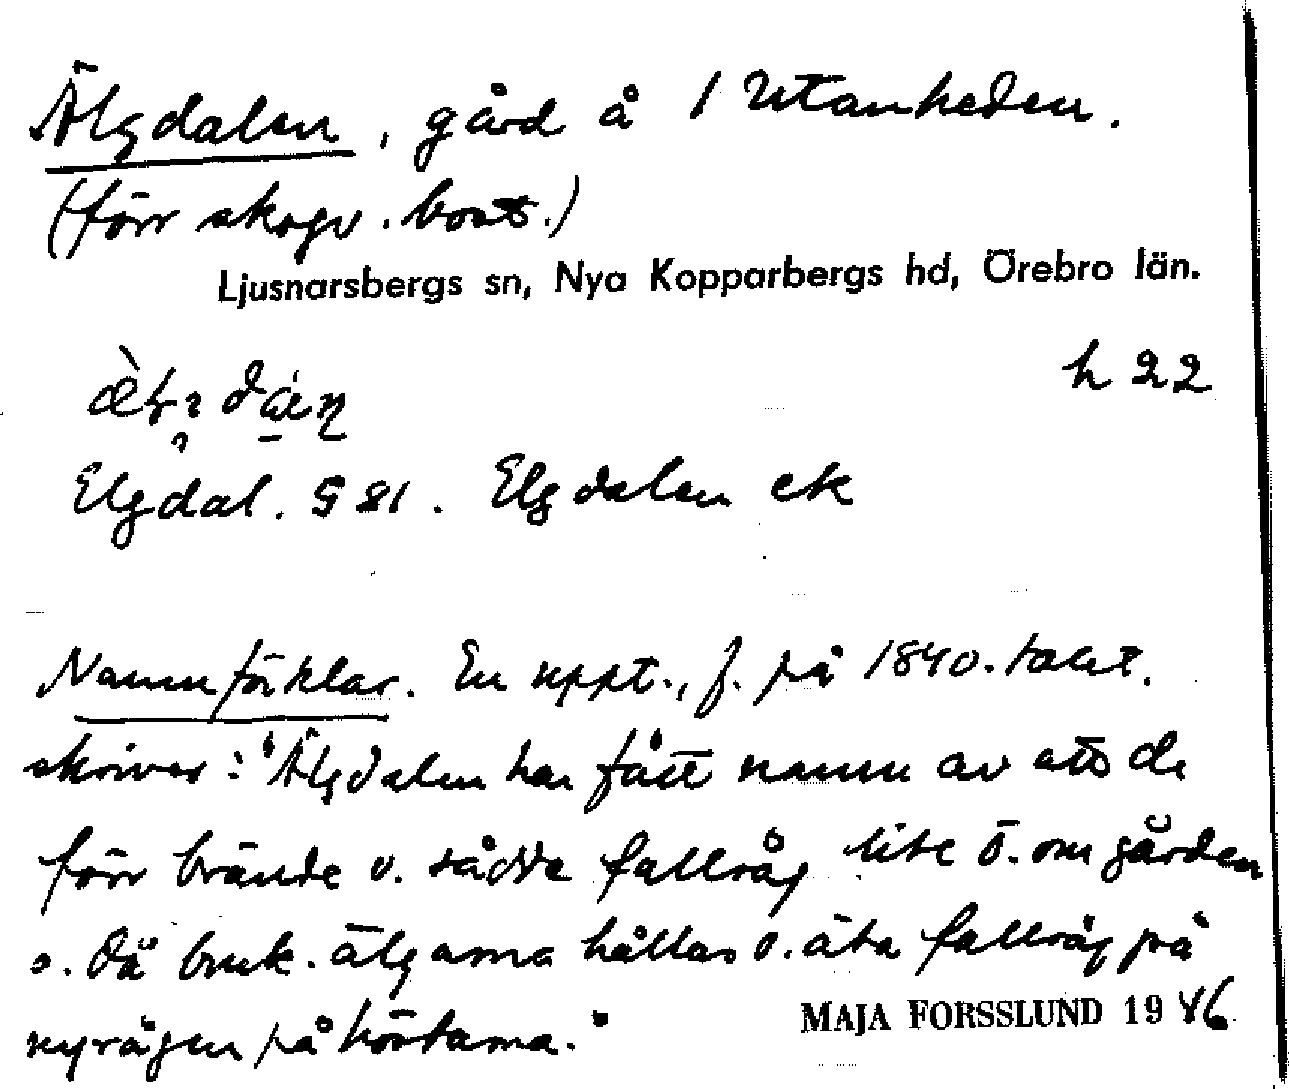 Älgdalen, gård å 1 Utanheden.
(förr skogv. bost.)
Ljusnarsbergs sn, Nya Kopparbergs hd, Örebro län.
h 22
Elgdal. G 81. Elgdalen ek
Namnförklar. En uppt., f. på 1840-talet.
skriver: "Älgdalen har fått namn av att de
förr brände o. sådde fallråg lite ö. om gården
o. då bruk. älgarna hållas o. äta fallråg på
nyrågen på höstarna."
MAJA FORSSLUND 1946